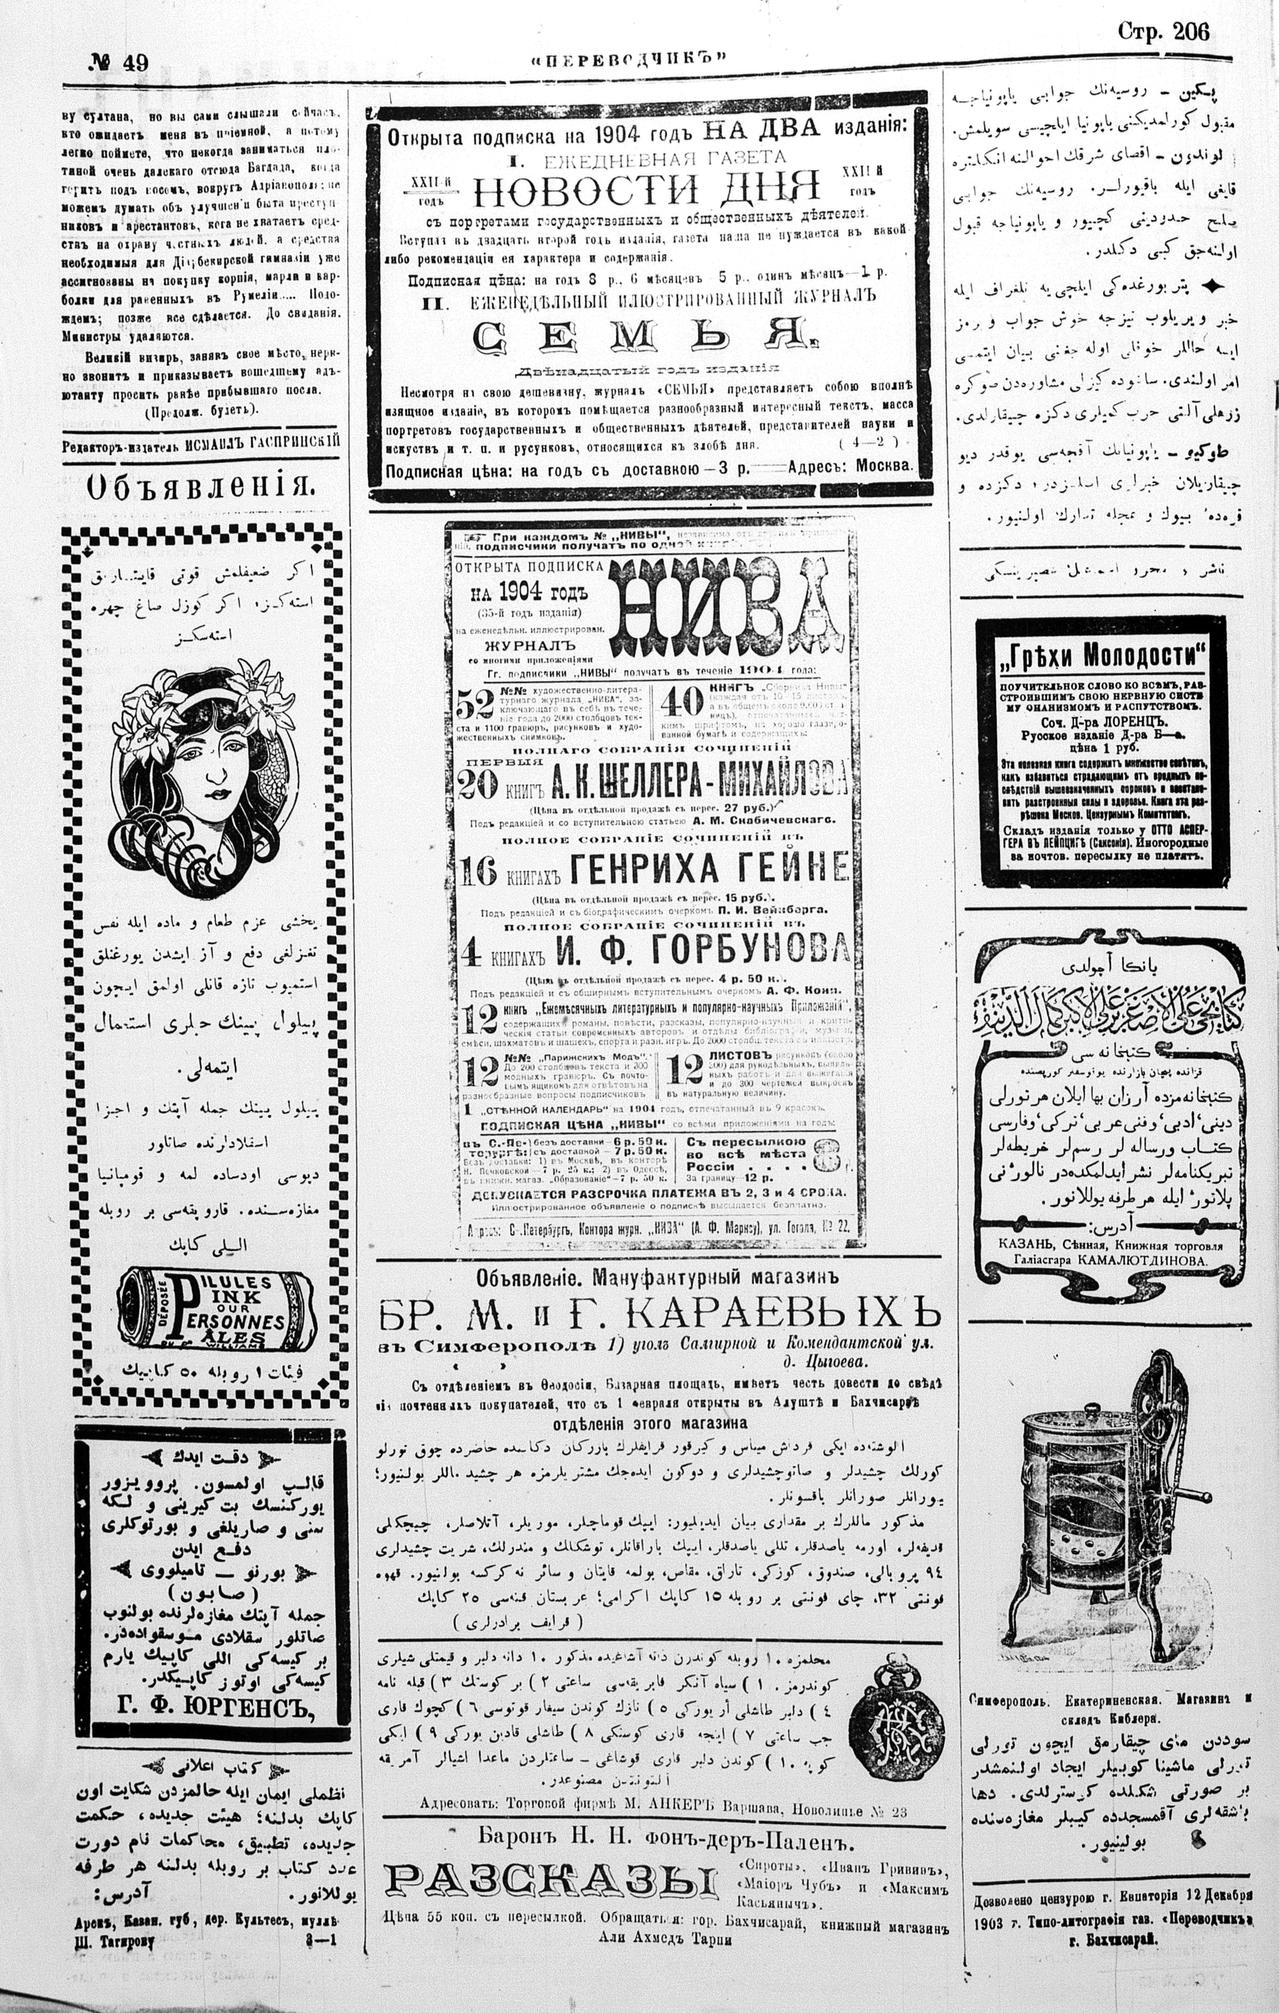 № 49
„ПЕРЕВОДЧИКЪ“
Стр. 206
ву султана, но вы сами слышали сейчасъ,
кто ожидаетъ меня въ пріемной, а потому
легко поймете, что некогда заниматься пло-
тиной очень далекаго отсюда Багдада, когда
горитъ подъ носомъ, вокругъ Адріанополя; не
можемъ думать объ улучшеніи быта преступ-
никовъ и арестантовъ, когда не хватаетъ сред-
ствъ на охрану честныхъ людей, а средства
необходимыя для Діарбекирской гимназіи уже
ассигнованы на покупку корпія, марли и кар-
болки для раненныхъ въ Румеліи.... Подо-
ждемъ; позже все сдѣлается. До свиданія.
Министры удаляются.
Великій визирь, занявъ свое мѣсто, нерв-
но звонитъ и приказываетъ вошедшему адъ-
ютанту просить ранѣе прибывшаго посла.
(Продолж. будетъ).
Редакторъ-издатель ИСМАИЛЪ ГАСПРИНСКІЙ
Объявленія.
اگر ضعیفلەمش قوتی
استەکز، اگر کوزل صاغ چهره
استەسکز
یخشی عزم طعام و ماده ایله نفس
تفزلغی دفع و آز ایشدن یورغنلق
استمیوب تازه قانلی اولمق ایچون
پیلول پینك حبلری استعمال
ایتمەلی.
پیلول پینك جمله آپتك و اجزا
اسقلادلرنده صاتلور
دبوسی اودساده لمه و قومپانیا
مغازەسنده. قاروبقەسی بر روبله
اللی کاپك
DÉPOSÉE
PILULES
PINK
POUR
PERSONNES
PALES
فیئات ۱ روبله ۵۰ کاپیك
دقت ایدك
قالب اولمسون. پروویزور
یورکنسك بت کیرینی و لکه
سنی و صاریلغی و بورتوکلری
دفع ایدن
بورنو — تامیلووی
(صابون)
جمله آپتك مغازەلرنده بولنوب
صاتلور سقلادی موسقوادەدر.
بر کیسەکی اللی کاپیك یارم
کیسەکی اوتوز کاپیکدر.
Г. Ф. ЮРГЕНСЪ,
کتاب اعلانی
نظملی ایمان ایله حالمزدن شکایت اون
کاپك بدلنه؛ هیئت جدیده، حکمت
جدیده، تطبیق، محاکمات نام دورت
عدد کتاب بر روبله بدلنه هر طرفه
یوللانور. آدرس:
Арскъ, Казан. губ., дер. Культесъ, муллѣ
Ш. Тагирову 3—1
Открыта подписка на 1904 годъ НА ДВА изданія:
I. ЕЖЕДНЕВНАЯ ГАЗЕТА
XXII-й годъ НОВОСТИ ДНЯ XXII-й годъ
съ портретами государственныхъ и общественныхъ дѣятелей.
Вступая въ двадцать второй годъ изданія, газета наша не нуждается въ какой
либо рекомендаціи ея характера и содержанія.
Подписная цѣна: на годъ 8 р., 6 мѣсяцевъ 5 р., одинъ мѣсяцъ—1 р.
II. ЕЖЕНЕДѢЛЬНЫЙ ИЛЮСТРИРОВАННЫЙ ЖУРНАЛЪ
СЕМЬЯ.
Двѣнадцатый годъ изданія
Несмотря на свою дешевизну, журналъ «СЕМЬЯ» представляетъ собою вполнѣ
изящное изданіе, въ которомъ помѣщается разнообразный интересный текстъ, масса
портретовъ государственныхъ и общественныхъ дѣятелей, представителей науки и
искуствъ и т. п. и русунковъ, относящихся къ злобѣ дня. (4—2)
Подписная цѣна: на годъ съ доставкою—3 р.——Адресъ: Москва.
При каждомъ № „НИВЫ“,
подписчики получатъ по одной
ОТКРЫТА ПОДПИСКА
НА 1904 годъ
(35-й годъ изданія)
на еженедѣльн. иллюстрирован.
ЖУРНАЛЪ
со многими приложеніями
НИВА
Гг. подписчики „НИВЫ“ получатъ въ теченіе 1904 года:
52 №№ художественно-литера-
турнаго журнала „НИВА“, за-
ключающаго въ себѣ въ тече-
ніе года до 2000 столбцовъ тек-
ста и 1100 гравюръ, рисунковъ и худо-
жественныхъ снимковъ.
40 КНИГЪ „Сборника Нивы“
ПОЛНАГО СОБРАНІЯ СОЧИНЕНІЙ
ПЕРВЫЯ
20 книгъ А. К. ШЕЛЛЕРА-МИХАЙЛОВА
(Цѣна въ отдѣльной продажѣ съ перес. 27 руб.)
Подъ редакціей и со вступительною статьею А. М. Скабичевскаго.
ПОЛНОЕ СОБРАНІЕ СОЧИНЕНІЙ ВЪ
16 книгахъ ГЕНРИХА ГЕЙНЕ
(Цѣна въ отдѣльной продажѣ съ перес. 15 руб.).
Подъ редакціей и съ біографическимъ очеркомъ П. И. Вейнберга.
ПОЛНОЕ СОБРАНІЕ СОЧИНЕНІЙ ВЪ
4 книгахъ И. Ф. ГОРБУНОВА
(Цѣна въ отдѣльной продажѣ съ перес. 4 р. 50 к.).
Подъ редакціей и съ обширнымъ вступительнымъ очеркомъ А. Ф. Кони.
12 книгъ „Ежемѣсячныхъ литературныхъ и популярно-научныхъ Приложеній“,
содержащихъ романы, повѣсти, разсказы, популярно-научныя и крити-
ческія статьи современныхъ авторовъ и отдѣлы библіографіи, музыки,
смѣси, шахматовъ и шашекъ, спорта и разн. игръ. До 2000 столбц. текста
12 №№ „Парижскихъ Модъ“.
До 200 столбцовъ текста и 300
модныхъ гравюръ. Съ почто-
вымъ ящикомъ для отвѣтовъ на
разнообразные вопросы подписчиковъ
12 ЛИСТОВЪ рисунковъ (около
300) для рукодѣльныхъ, выпиль-
ныхъ работъ и для выжиганія
и до 300 чертежей выкроекъ
въ натуральную величину.
1 „СТѢННОЙ КАЛЕНДАРЬ“ на 1904 годъ, отпечатанный въ 9 красокъ.
ПОДПИСНАЯ ЦѢНА „НИВЫ“ со всѣми приложеніями на годъ:
въ С.-Пе-
тербургѣ: безъ доставки—6 р. 50 к.
съ доставкой—7 р. 50 к.
Безъ доставки: 1) въ Москвѣ, въ конторѣ
Н. Печковской—7 р. 25 к.; 2) въ Одессѣ,
въ книжн. магаз. „Образованіе“—7 р. 50 к.
Съ пересылкою
во всѣ мѣста
Россіи .... 8 р.
За границу—12 р.
ДОПУСКАЕТСЯ РАЗСРОЧКА ПЛАТЕЖА ВЪ 2, 3 и 4 СРОКА.
Иллюстрированное объявленіе о подпискѣ высылается безплатно.
Адресъ: С.-Петербургъ, Контора журн. „НИВА“ (А. Ф. Марксу), ул. Гоголя, № 22.
Объявленіе. Мануфактурный магазинъ
БР. М. и Г. КАРАЕВЫХЪ
въ Симферополѣ 1) уголъ Салгирной и Комендантской ул.
д. Цыгоева.
Съ отдѣленіемъ въ Ѳеодосіи, Базарная площадь, имѣетъ честь довести до свѣдѣ
нія почтенныхъ покупателей, что съ 1 февраля открыты въ Алуштѣ и Бахчисараѣ
отдѣленія этого магазина
الوشتەده ایکی قرداش میناس و کیرقور قرایفلرك بازرکان دکاننده حاضرده چوق تورلو
کورلك چشیدلر و صاتوچشیدلری و دوکون ایدەجك مشتریلرمزه هر چشید ماللر بولنیور؛
یورانلر صورانلر باقسونلر.
مذکور ماللرك بر مقداری بیان ایدیلیور: ایپك قوماچلر، موریلر، آتلاصلر، چیچکلی
قدیفەلر، اورمه یاصدقلر، تللی یاصدقلر، ایپك یاراقانلر، توشکلك و مندرلك، شریت چشیدلری
۹۴ پروبالی، صندوق، کوزکی، تاراق، مقاص، بولمه قایتان و سائر نه کرکسه بولنیور. قهوه
فونتی ۳۲، چای فونتی بر روبله ۱۵ کاپك اکرامی؛ عربستان قنەسی ۲۵ کاپك
(قرایف برادرلری)
محلمزه ۱۰ روبله کوندرن ذاته آشاغیده مذکور ۱۰ دانه دلبر و قیمتلی شیلری
کوندرمز. ۱) سیاه آنکر فابریقەسی ساعتی ۲) بر کوستك ۳) قبله نامه
۴) دلبر طاشلی آریوزکی ۵) نازك کوندن سیغار قوتوسی ۶) کچوك قاری
جب ساعتی ۷) اینجه قاری کوستکی ۸) طاشلی قادین یوزکی ۹) ایکی
کوپه ۱۰) کوندن دلبر قاری قوشاغی — ساعتلردن ماعدا اشیالر آمریقه
آلتونندن مصنوعدر.
Адресовать: Торговой фирмѣ М. АНКЕРЪ Варшава, Новолипье № 23
Баронъ Н. Н. фонъ-деръ-Паленъ.
РАЗСКАЗЫ
«Сироты», «Иванъ Гривинъ»,
«Маіоръ Чубъ» и «Максимъ
Касьянычъ».
Цѣна 55 коп. съ пересылкой. Обращаться: гор. Бахчисарай, книжный магазинъ
Али Ахмедъ Тарпи
پکین — روسیەنك جوابی یاپونیاجه
مقبول کورلمدیکنی یاپونیا ایلچیسی سویلمش.
لوندون — اقصای شرقك احوالنه انکلتره
قایغی ایله باقیورلر. روسیەنك جوابی
صلح حدودینی کچیور و یاپونیاجه قبول
اولنەجق کبی دکلدر.
پتربورغدەکی ایلچی یه تلغراف ایله
خبر ویریلوب نیزجه خوش جواب ویرمز
ایسه حاللر خوفلی اولەجغنی بیان ایتمسی
امر اولندی. سانوده کیزلی مشاورەدن صوکره
زرهلی آلتی حرب کمیلری دکزه چیقارلدی.
طوکیو — یاپونیانك آقچەسی یوقدر دیو
چیقاریلان خبرلری اصلسزدر؛ دکزده و
قرەده بیوك و عجله تدارك اولنیور.
ناشر و محرری اسماعیل غصپرینسکی
„Грѣхи Молодости“
ПОУЧИТЕЛЬНОЕ СЛОВО КО ВСѢМЪ, РАЗ-
СТРОИВШИМЪ СВОЮ НЕРВНУЮ СИСТЕ
МУ ОНАНИЗМОМЪ И РАСПУТСТВОМЪ.
Соч. Д-ра ЛОРЕНЦЪ.
Русское изданіе Д-ра Б—а.
цѣна 1 руб.
Эта полезная книга содержитъ множество совѣтовъ,
какъ избавиться страдающимъ отъ вредныхъ по-
слѣдствій вышеназначенныхъ пороковъ и возстано-
вить разстроенныя силы и здоровье. Книга эта раз-
рѣшена Москов. Цензурнымъ Комитетомъ.
Складъ изданія только у ОТТО АСПЕР-
ГЕРА ВЪ ЛЕЙПЦИГѢ (Саксонія). Иногородные
за почтов. пересылку не платятъ.
یانکا آچولدی
کتابخانەسی
قزانده پچان بازارنده یونوسفلر کورپسنده
کتبخانەمزده آرزان بها ایلان هرتورلی
دینی، ادبی، وفنی عربی، ترکی، وفارسی
کتاب ورساله لر رسم لر خریطەلر
تبریکنامەلر نشر ایدلمکدەدر نالوژنی
پلاتوژ ایله هر طرفه یوللانور.
آدرس:
КАЗАНЬ, Сѣнная, Книжная торговля
Галіасгара КАМАЛЮТДИНОВА.
Симферополь. Екатерининская. Магазинъ и
складъ Киблера.
سوددن مای چیقارمق ایچون تورلی
تورلی ماشینا کوبیلر ایجاد اولنمشدر
بر صورتی شکلده کوسترلدی. دها
باشقەلری آقمسجدده کیبلر مغازەسنده
بولینیور.
Дозволено цензурою г. Евпаторія 12 Декабря
1903 г. Типо-литографія газ. «Переводчикъ»
г. Бахчисарай.